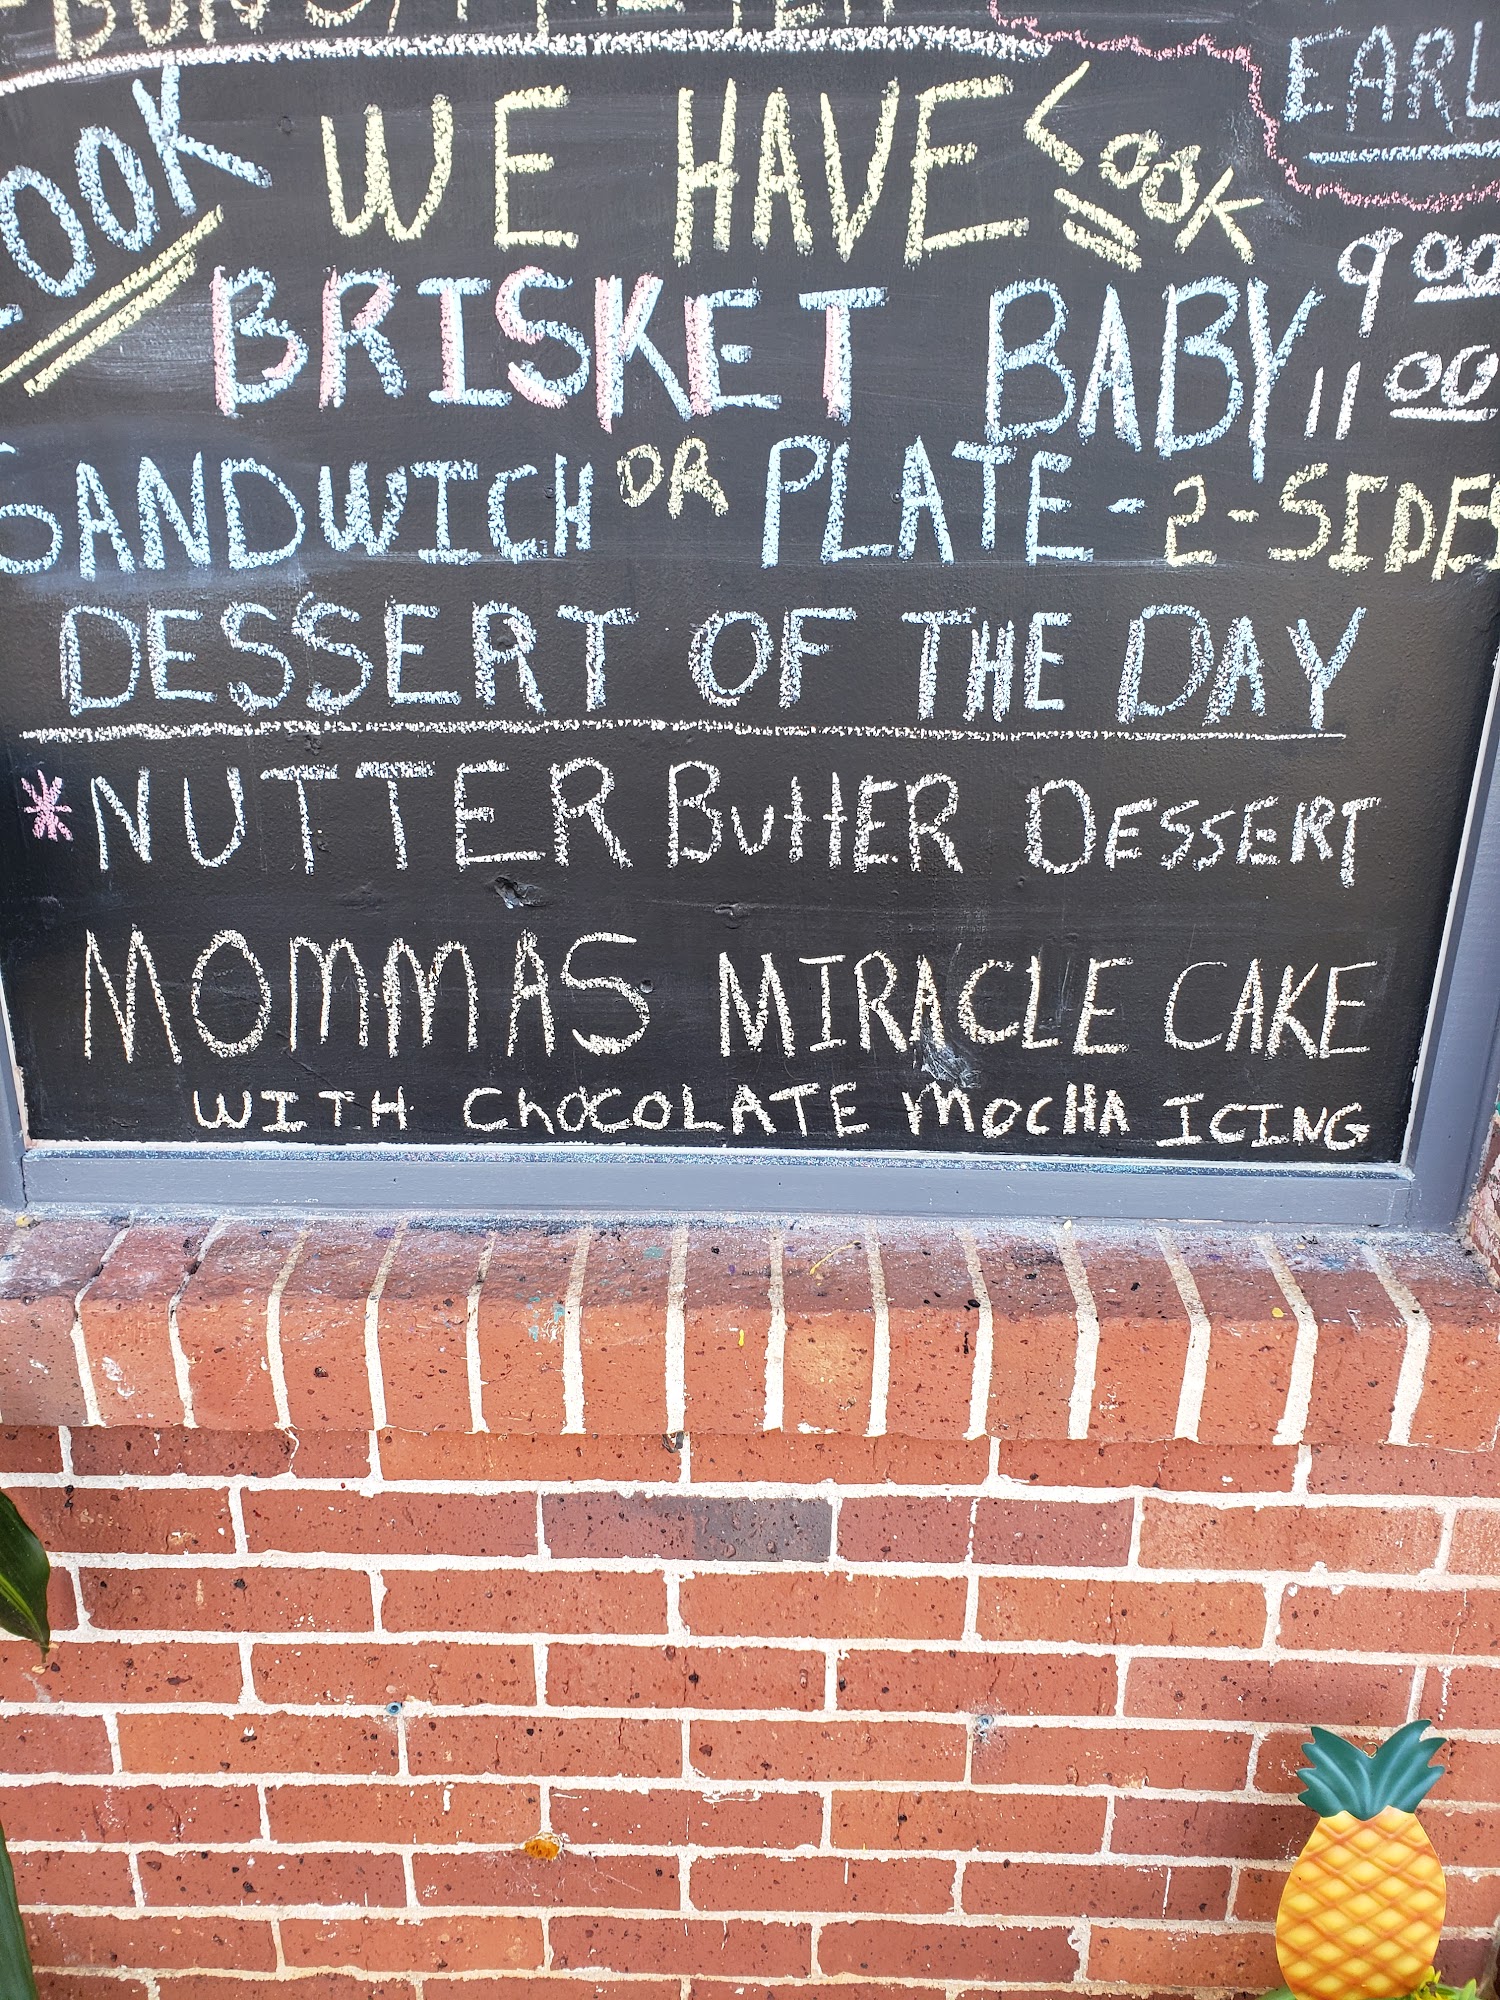 EARL
LOOK WE HAVE LOOK
900
BRISKET BABY
11 00
SANDWICH OR PLATE - 2 - SIDES
DESSERT OF THE DAY
* NUTTER BUttER DESSERT
MOMMAS MIRACLE CAKE
WITH CHOCOLATE MOCHA ICING